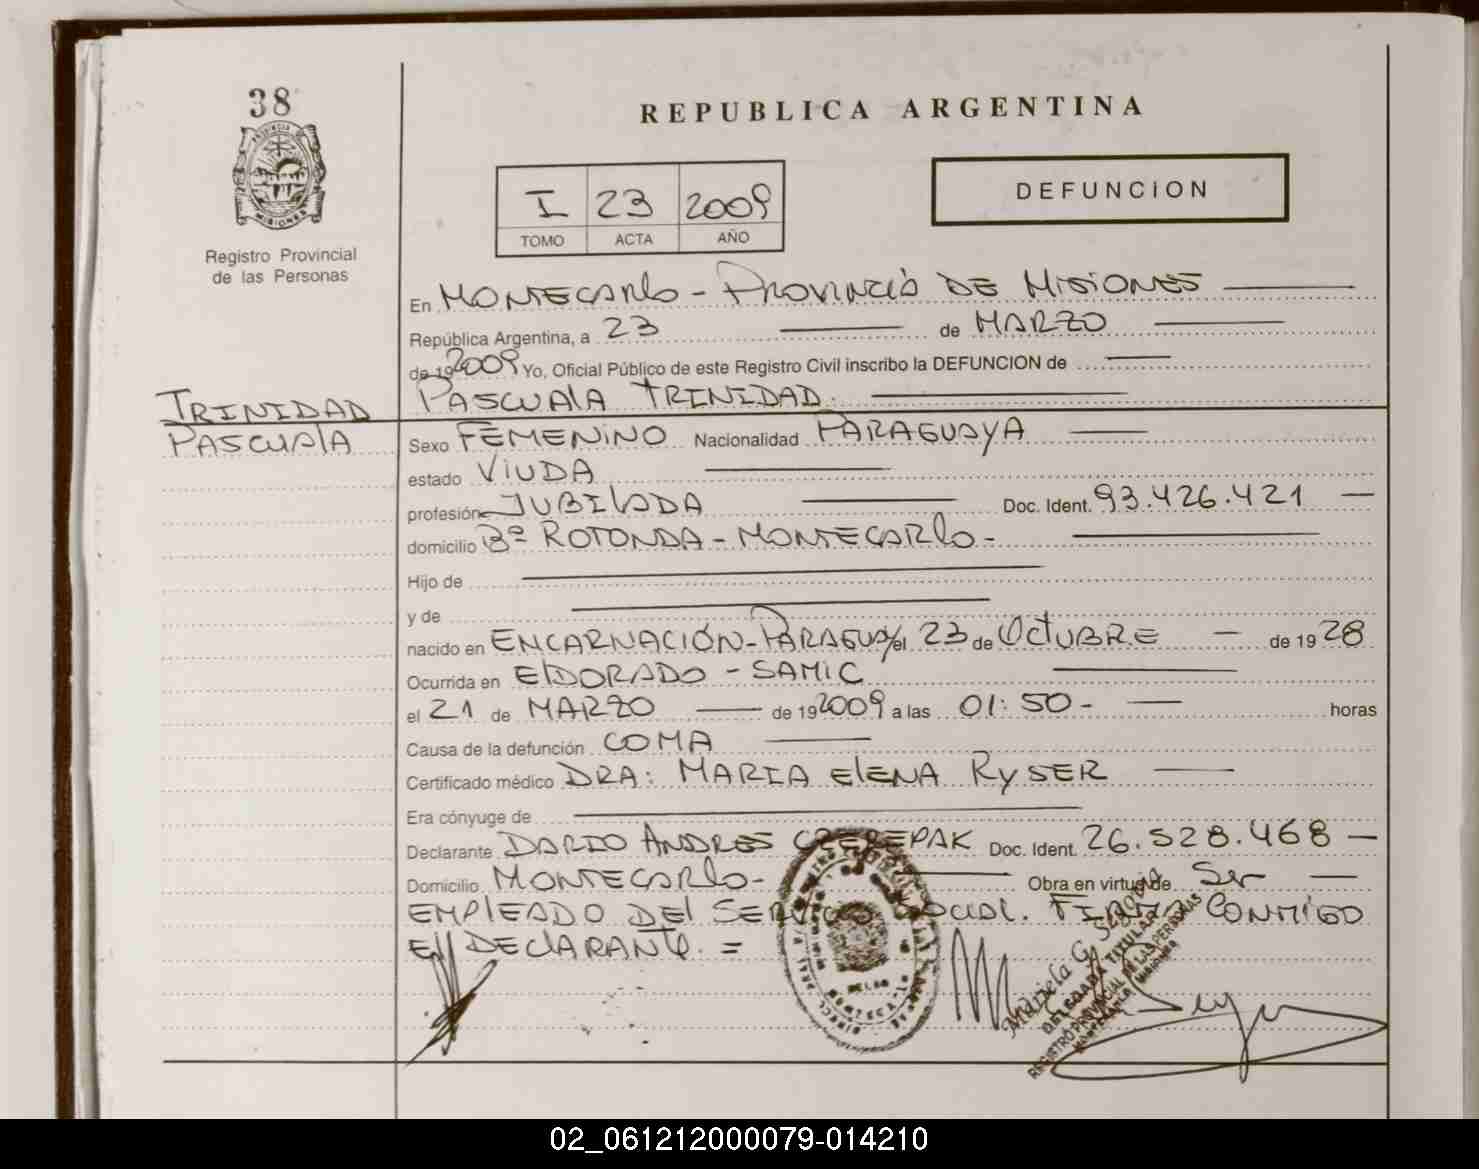 38
REPUBLICA ARGENTINA
PROVINCIA DE
MISIONES
Registro Provincial
de las Personas
I 23 2009
TOMO ACTA AÑO
DEFUNCION
En MONTECARLO - PROVINCIA DE MISIONES
República Argentina, a 23 de MARZO
de 19 2009 Yo, Oficial Público de este Registro Civil inscribo la DEFUNCION de
TRINIDAD PASCUALA TRINIDAD.
PASCUALA Sexo FEMENINO Nacionalidad PARAGUAYA
estado VIUDA
profesión JUBILADA Doc. Ident. 93.426.421
domicilio Bº ROTONDA - MONTECARLO -
Hijo de
y de
nacido en ENCARNACIÓN - PARAGUAY el 23 de OCTUBRE de 19 28
Ocurrida en ELDORADO - SAMIC
el 21 de MARZO de 19 2009 a las 01:50 - horas
Causa de la defunción COMA
Certificado médico DRA: MARIA ELENA RYSER
Era cónyuge de
Declarante DARIO ANDRES Doc. Ident. 26.528.468 -
Domicilio MONTECARLO - Obra en virtud de Ser
EMPLEADO DEL SERVICIO SOCIAL. FIRMA CONMIGO
El DECLARANTE. =
Mariela G.
DELEGADA TITULAR
REGISTRO PROVINCIAL DE LAS PERSONAS
02_061212000079-014210